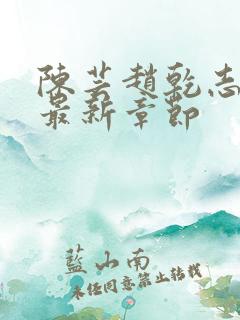 陳芸趙乾志
最新章節
藍山南
未任同意禁止轉載